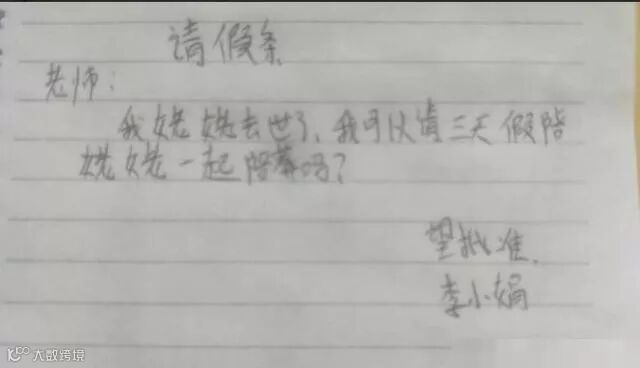 请假条
老师：
我姥姥去世了，我可以请三天假陪
姥姥一起陪葬吗？
望批准.
李小娟
大数跨境